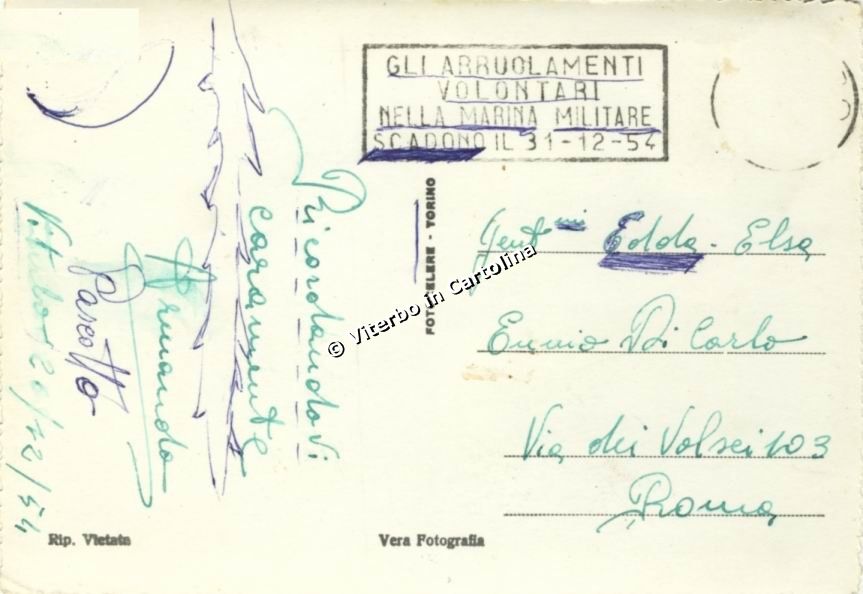 GLI ARRUOLAMENTI
VOLONTARI
NELLA MARINA MILITARE
SCADONO IL 31-12-54
Ricordandovi
caramente
Armando
Pascotto
Viterbo 20/12/54
FOTOCELERE - TORINO
© Viterbo in Cartolina
Gent.mi Edda - Elsa
Ennio Di Carlo
Via dei Volsci 103
Roma
Rip. Vietata
Vera Fotografia